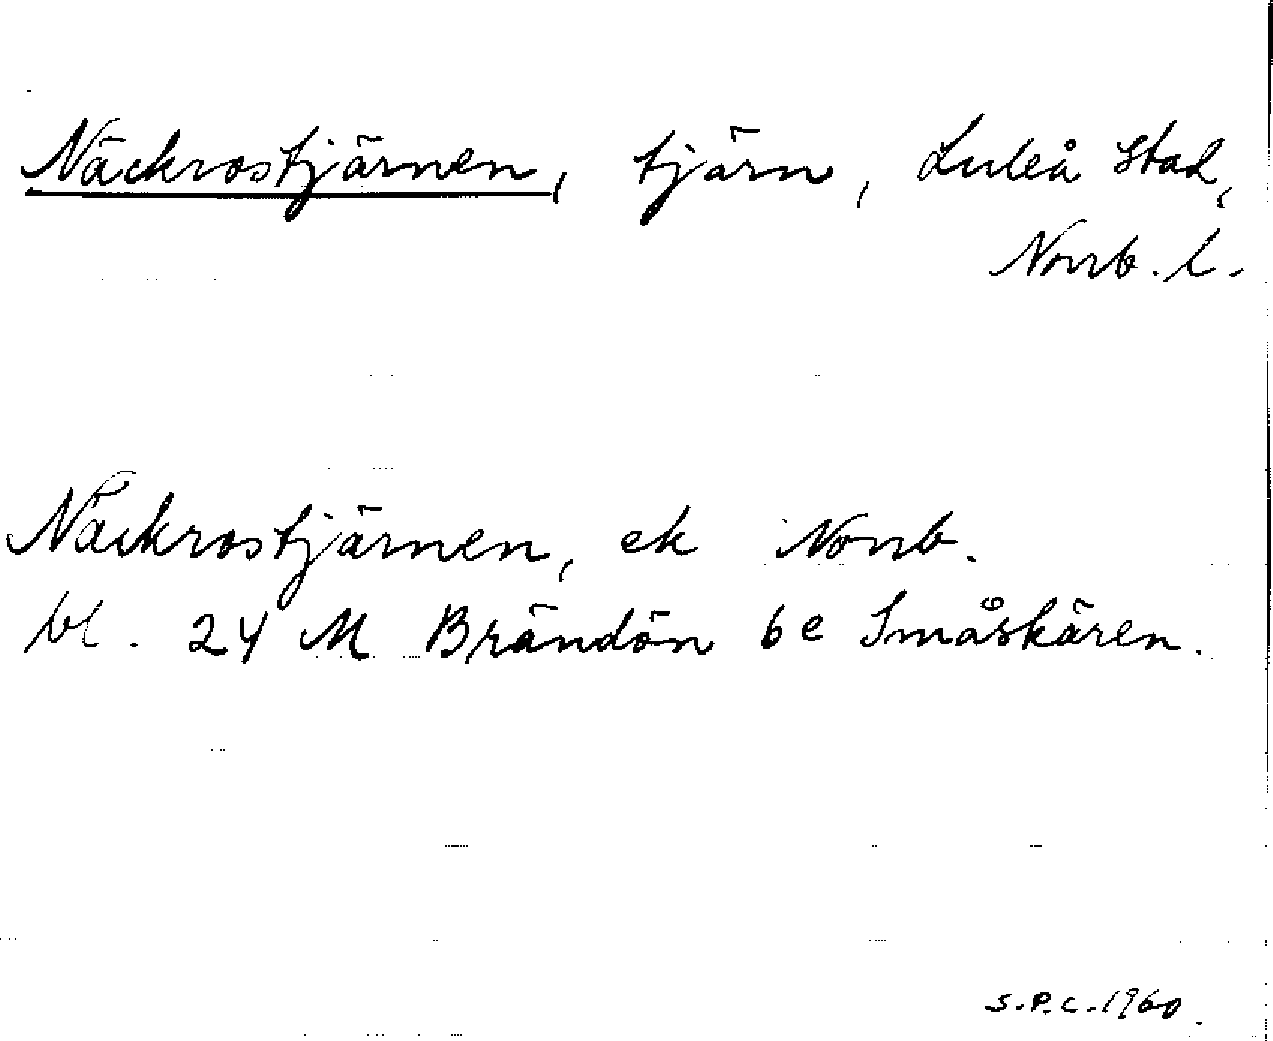 Näckrostjärnen, tjärn, Luleå stad,
Norrb. l.
Näckrostjärnen, ek Norrb.
bl. 24 M Brändön 6e Småskären.
S.P.C. 1960.